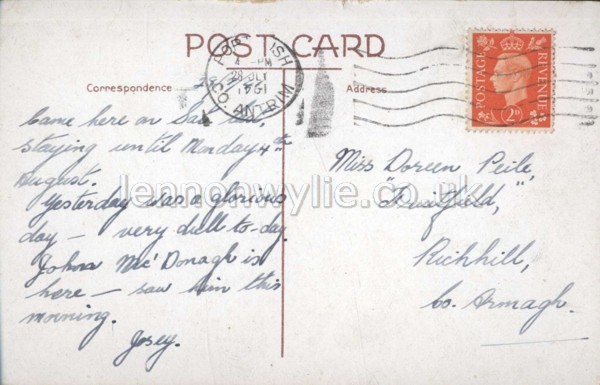 POST CARD
Correspondence
Address
PORISH
4 - PM
28 JLY
CO. ANTRIM
POSTAGE
REVENUE
2D
Came here on Sat.
staying until Monday 4th
August.
Yesterday was a glorious
day – very dull to-day.
John Mc'Donagh is
here – saw him this
morning.
Josey.
Miss Doreen Peile,
"Fruitfield,"
Richhill,
Co. Armagh.
lennonwylie.co.uk